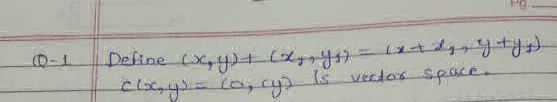 Pg.
Q-1 Define (x, y) + (x₁, y₁) = (x + x₁, y + y₁)
c(x, y) = (0, cy) is vector space.